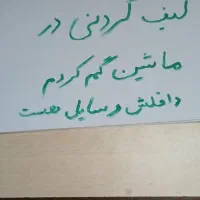 کیف گردنی در
ماشین گم کردم
داخلش وسایل هست